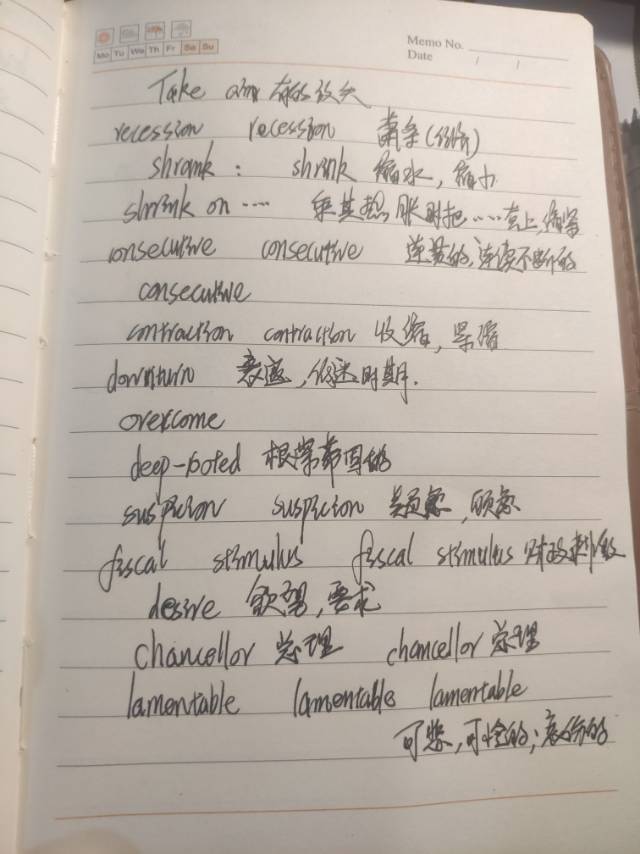 Memo No.
Mo Tu We Th Fr Sa Su
Date / /
Take aim 有的放矢
recession recession 萧条(经济)
shrank : shrink 缩水,缩小
shrink on ···· 乘其热胀时把……套上,缩紧
onsecutive consecutive 连贯的,连续不断的
consecutive
contraction contraction 收缩,紧缩
downturn 衰退,低迷时期.
overcome
deep-rooted 根深蒂固的
suspicion suspicion 嫌疑,怀疑
fiscal stimulus fiscal stimulus 财政刺激
desire 欲望,要求
chancellor 总理 chancellor 总理
lamentable lamentable lamentable
可悲,可惜的;哀伤的